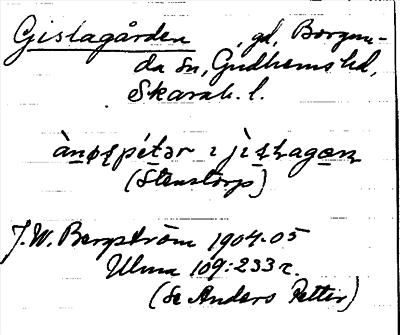 Gislagården, gd, Borgun-
da sn, Gudhems hd,
Skarab. l.
ànəʂpétər ı jìʂɫagən
(Stenstorp)
J. W. Bergström 1904-05
Ulma 109:233 r.
(Se Anders Petter)